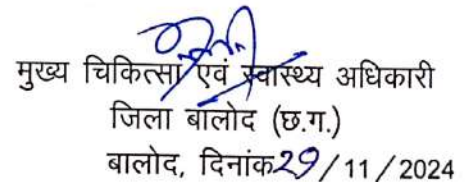 मुख्य चिकित्सा एवं स्वास्थ्य अधिकारी
जिला बालोद (छ.ग.)
बालोद, दिनांक 29/11/2024